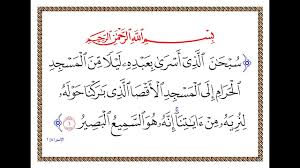 بِسْمِ اللَّهِ الرَّحْمَٰنِ الرَّحِيمِ
﴿سُبْحَٰنَ ٱلَّذِىٓ أَسْرَىٰ بِعَبْدِهِۦ لَيْلًا مِّنَ ٱلْمَسْجِدِ
ٱلْحَرَامِ إِلَى ٱلْمَسْجِدِ ٱلْأَقْصَا ٱلَّذِى بَٰرَكْنَا حَوْلَهُۥ
لِنُرِيَهُۥ مِنْ ءَايَٰتِنَآ إِنَّهُۥ هُوَ ٱلسَّمِيعُ ٱلْبَصِيرُ ۝١﴾